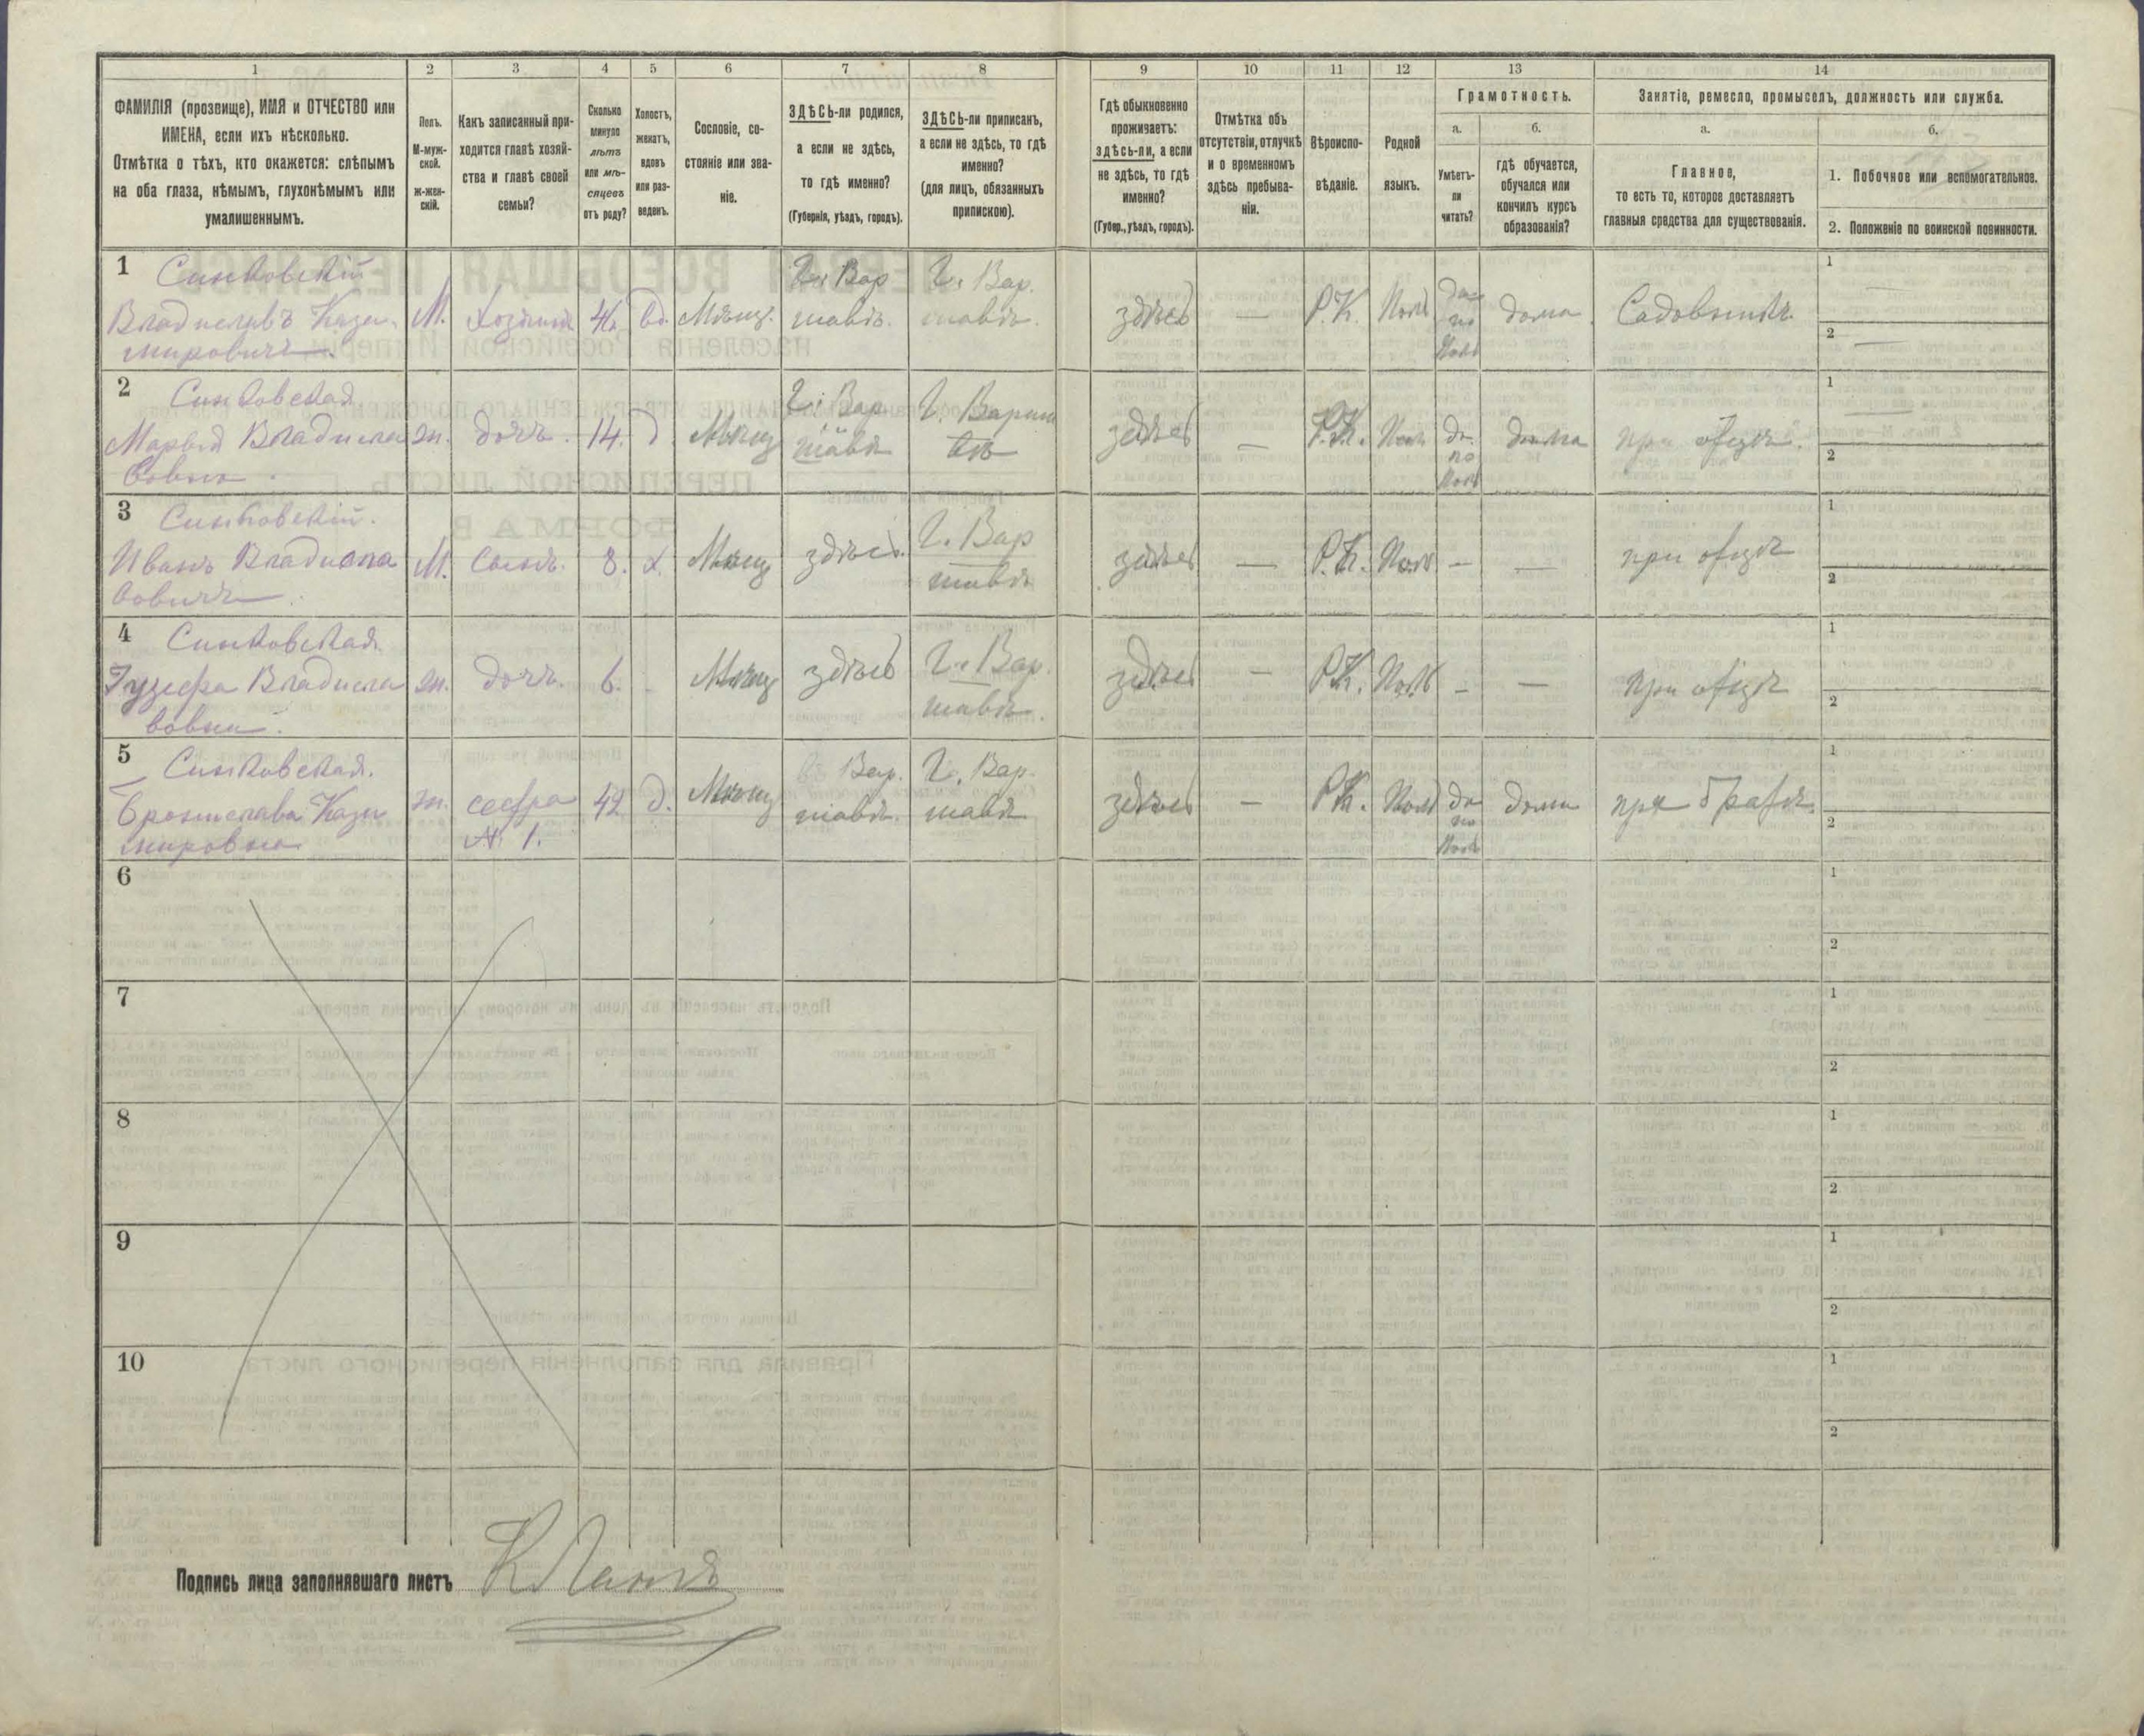 1
2
3
4
5
6
7
8
9
10
11
12
13
14
ФАМИЛІЯ (прозвище), ИМЯ и ОТЧЕСТВО или
ИМЕНА, если ихъ нѣсколько.
Отмѣтка о тѣхъ, кто окажется: слѣпымъ
на оба глаза, нѣмымъ, глухонѣмымъ или
умалишеннымъ.
Полъ.
М-муж-
ской.
Ж-жен-
скій.
Какъ записанный при-
ходится главѣ хозяй-
ства и главѣ своей
семьи?
Сколько
минуло
лѣтъ
или мѣ-
сяцевъ
отъ роду?
Холостъ,
женатъ,
вдовъ
или раз-
веденъ.
Сословіе, со-
стояніе или зва-
ніе.
ЗДѢСЬ-ли родился,
а если не здѣсь,
то гдѣ именно?
(Губернія, уѣздъ, городъ).
ЗДѢСЬ-ли приписанъ,
а если не здѣсь, то гдѣ
именно?
(для лицъ, обязанныхъ
припискою).
Гдѣ обыкновенно
проживаетъ:
здѣсь-ли, а если
не здѣсь, то гдѣ
именно?
(Губер., уѣздъ, городъ).
Отмѣтка объ
отсутствіи, отлучкѣ
и о временномъ
здѣсь пребыва-
ніи.
Вѣроиспо-
вѣданіе.
Родной
языкъ.
Грамотность.
а.
Умѣетъ-
ли
читать?
б.
гдѣ обучается,
обучался или
кончилъ курсъ
образованія?
Занятіе, ремесло, промыселъ, должность или служба.
а.
Главное,
то есть то, которое доставляетъ
главныя средства для существованія.
б.
1. Побочное или вспомогательное.
2. Положеніе по воинской повинности.
1 Синковскій
Владиславъ Кази-
мировичъ.
М.
Хозяинъ
46.
вд.
Мѣщ.
Г. Вар
шавѣ.
Г. Вар.
шавѣ.
здѣсь
—
Р.К.
Поль
да
по
Поль
дома
Садовникъ.
1 —
2 —
2 Синковская
Марья Владисла
вовна.
ж.
дочь.
14.
д.
Мѣщ
Г. Вар
шавѣ
Г. Варша
вѣ
здѣсь
—
Р.К.
Поль
да
по
Поль
дома
при отцѣ.
1
2
3 Синковскій.
Иванъ Владисла
вовичъ.
М.
Сынъ.
8.
х.
Мѣщ
здѣсь.
Г. Вар
шавѣ
здѣсь
—
Р.К.
Поль
—
—
при отцѣ
1
2
4 Синковская.
Іузефа Владисла
вовна.
ж.
дочь.
6.
-
Мѣщ
здѣсь
Г. Вар.
шавѣ.
здѣсь
—
Р.К.
Поль
-
—
при отцѣ
1
2
5 Синковская.
Бронислава Кази
мировна
ж.
сестра
№ 1.
42
д.
Мѣщ
въ Вар.
шавѣ.
Г. Вар.
шавѣ
здѣсь
—
Р.К.
Поль
да
по
Поль
дома
при братѣ.
1
2
6
1
2
7
1
2
8
1
2
9
1
2
10
1
2
Подпись лица заполнявшаго листъ